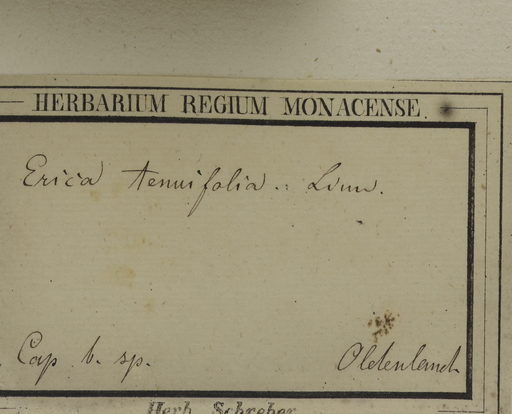 HERBARIUM REGIUM MONACENSE.
Erica tenuifolia. Linn.
Cap b. sp. Oldenland.
Herb. Schreber